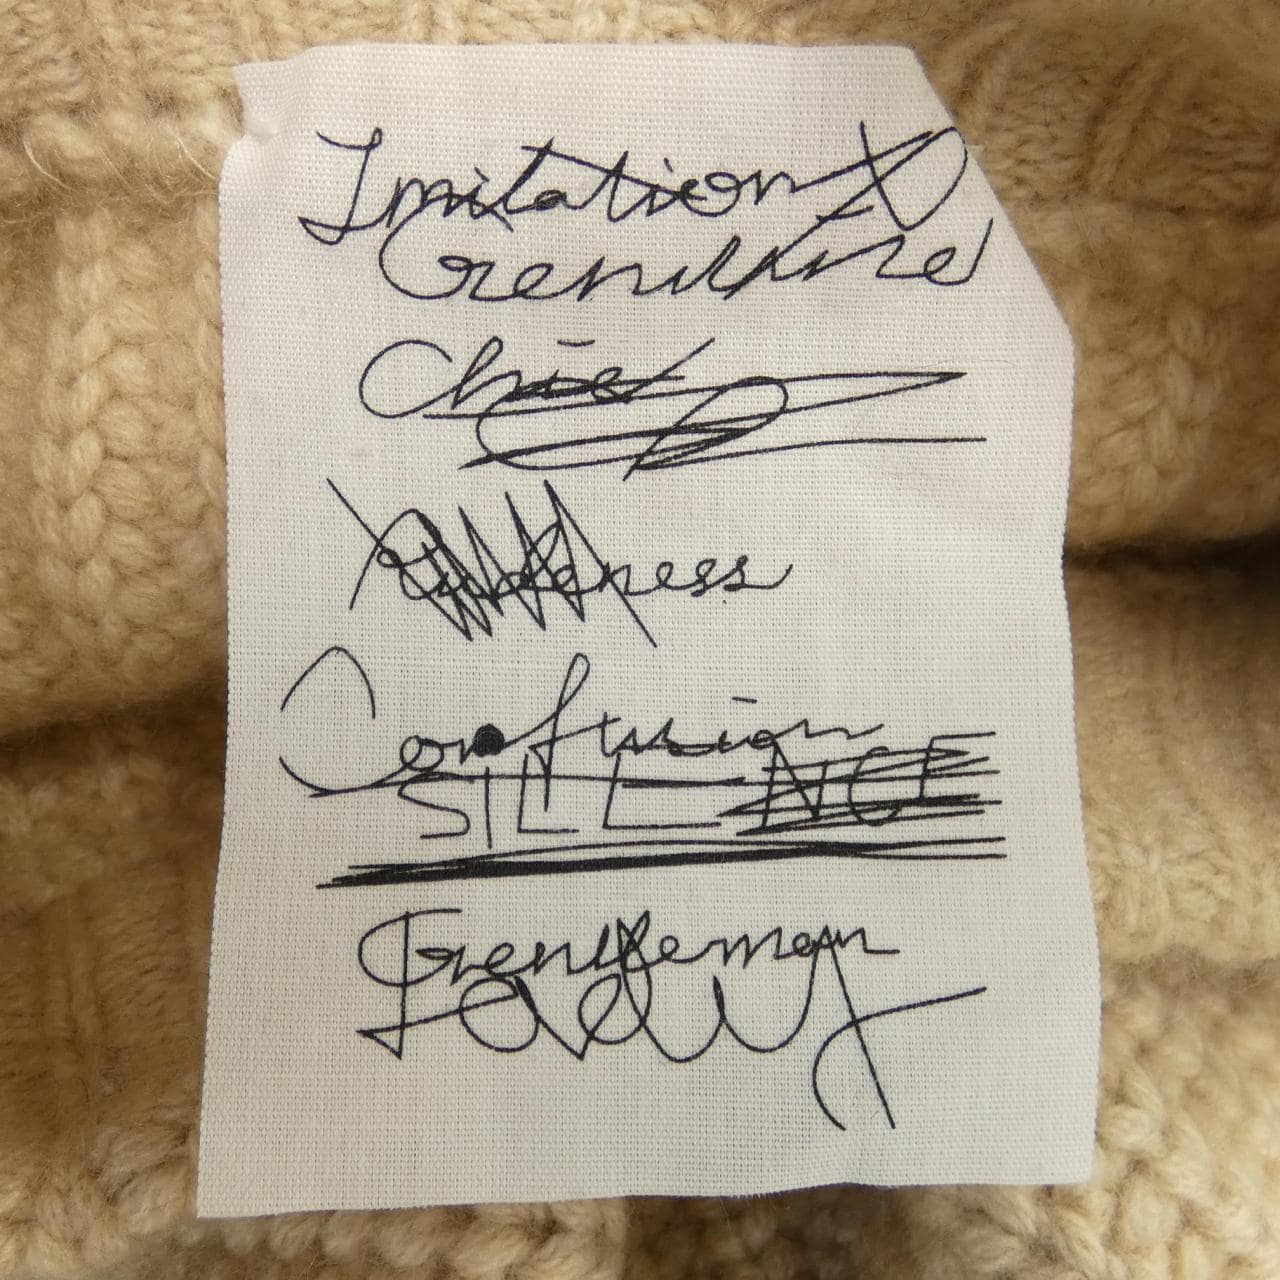 Imitation &
Genuine
Chief
Rudeness
Confusion
SILENCE
Gentleman